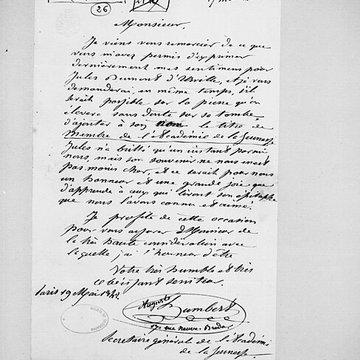 26
Monsieur,
Je viens vous remercier de ce que
vous m'avez permis d'exprimer
dernièrement mes sentimens pour
Jules Dumont d'Urville, et je vous
demanderai, en même temps, s'il
serait possible sur la pierre qu'on
élevera sans doute sur sa tombe
d'ajouter à son nom le titre de
Membre de l'Académie de la Jeunesse.
Jules n'a brillé qu'un instant parmi
nous, mais son souvenir ne nous en est
pas moins cher, et ce serait pour nous
un honneur et une grande joie que
d'apprendre à ceux qui liront son épitaphe
que nous l'avons connu et aimé.
Je profite de cette occasion
pour vous assurer, Monsieur, de
la très haute considération avec
laquelle j'ai l'honneur d'être
Votre très humble et très
obéissant serviteur
Paris 29 Mai 1842.
Auguste
Humbert
rue neuve-Breda
Secrétaire général de l'Académie
de la Jeunesse